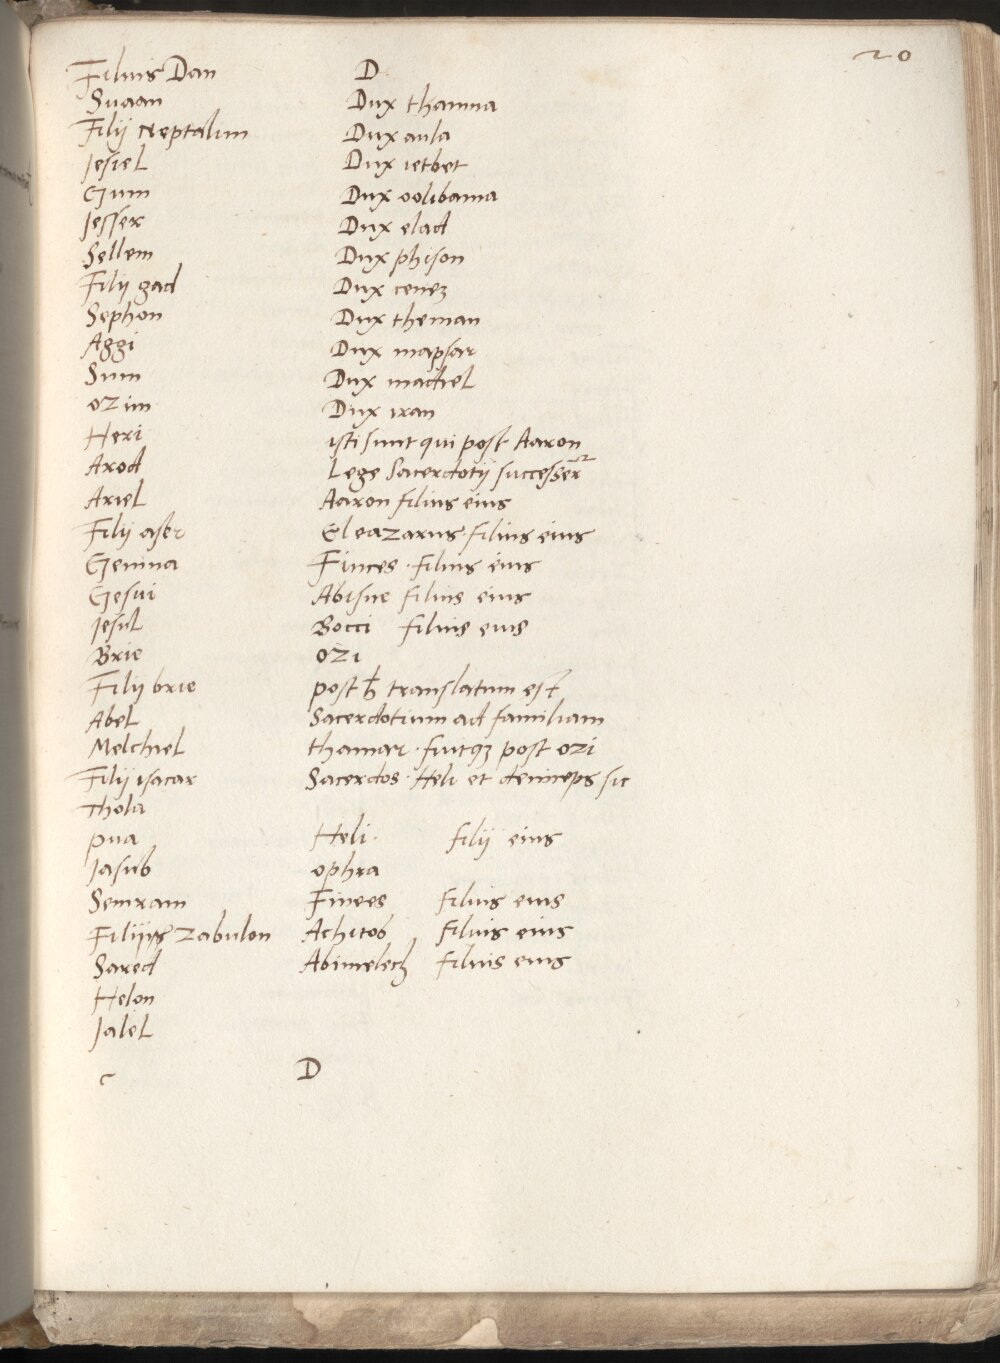 20
Filius Dan
Suaan
Filij Neptalim
Jesiel
Gum
Jesser
Sellem
Filij gad
Sephon
Aggi
Sum
Ozim
Heri
Arod
Ariel
Filij aser
Gemina
Gesui
Jesul
Brie
Filij brie
Abel
Melchiel
Filij isacar
Thola
pua
Jasub
Semram
Filijs Zabulon
Sared
Helon
Jalel
c
D
Dux thamna
Dux aula
Dux ietbet
Dux oolibama
Dux elad
Dux phison
Dux cenez
Dux theman
Dux mapsar
Dux madiel
Dux iran
isti sunt qui post Aaron
Lege Sacerdotij successer
Aaron filius eius
Eleazarus filius eius
Finees filius eius
Abisue filius eius
Bocci filius eius
Ozi
post h translatum est
Sacerdotium ad familiam
thamar fuitq; post ozi
Sacerdos Heli et deinceps sic
Heli filij eius
ophra
Finees filius eius
Achitob filius eius
Abimelech filius eius
D